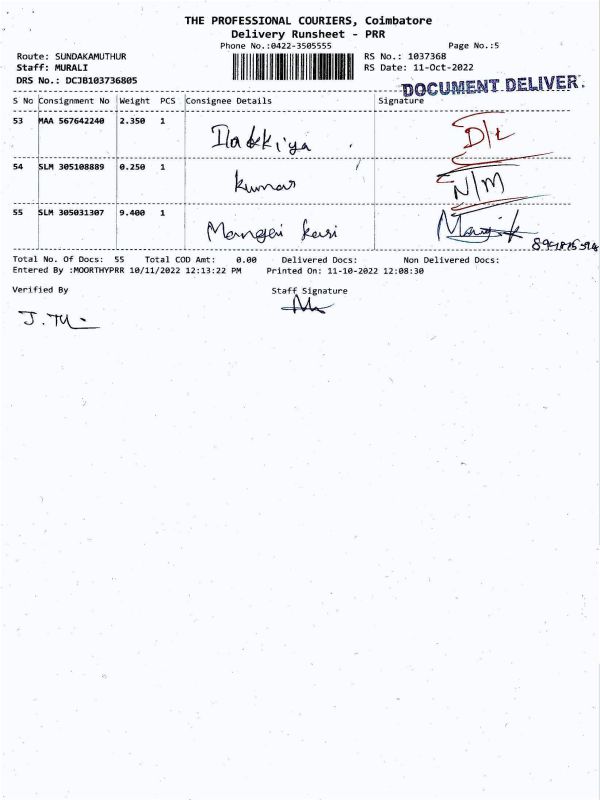 THE PROFESSIONAL COURIERS, Coimbatore
Delivery Runsheet - PRR
Phone No.:0422-3505555 Page No.:5
Route: SUNDAKAMUTHUR RS No.: 1037368
Staff: MURALI RS Date: 11-Oct-2022
DRS No.: DCJB103736805
DOCUMENT DELIVER.
S No Consignment No Weight PCS Consignee Details Signature
53 MAA 567642240 2.350 1
54 SLM 305108889 0.250 1 Kumar N/M
55 SLM 305031307 9.400 1 Mangai
Total No. Of Docs: 55 Total COD Amt: 0.00 Delivered Docs: Non Delivered Docs:
Entered By :MOORTHYPRR 10/11/2022 12:13:22 PM Printed On: 11-10-2022 12:08:30
Verified By Staff Signature